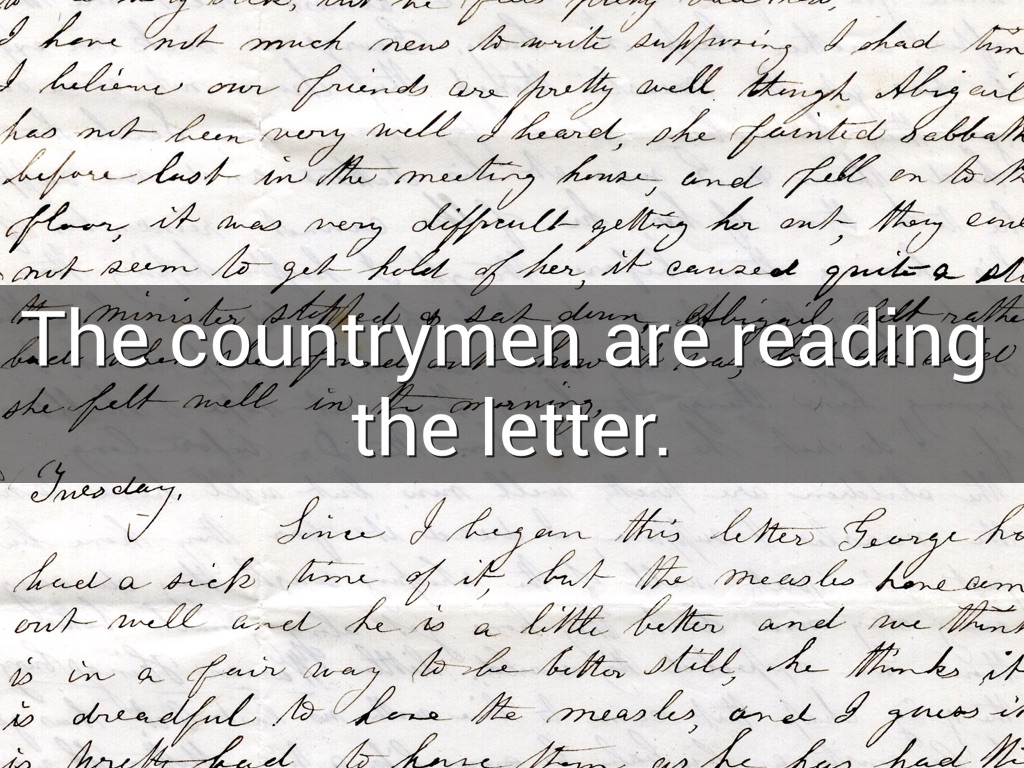 I have not much news to write supposing I had
I believe our friends are pretty well though Abigail
has not been very well I heard, she fainted Sabbath
before last in the meeting house, and fell on to
floor, it was very difficult getting her out, they
not seem to get hold of her, it caused quite a
the minister stopped & sat down, Abigail felt
The countrymen are reading
she felt well in the morning,
the letter.
Tuesday.
Since I began this letter George
had a sick time of it, but the measles have
out well and he is a little better and we
is in a fair way to be better still, he thinks it
is dreadful to have the measles, and I guess
is pretty bad to have them, as he has had